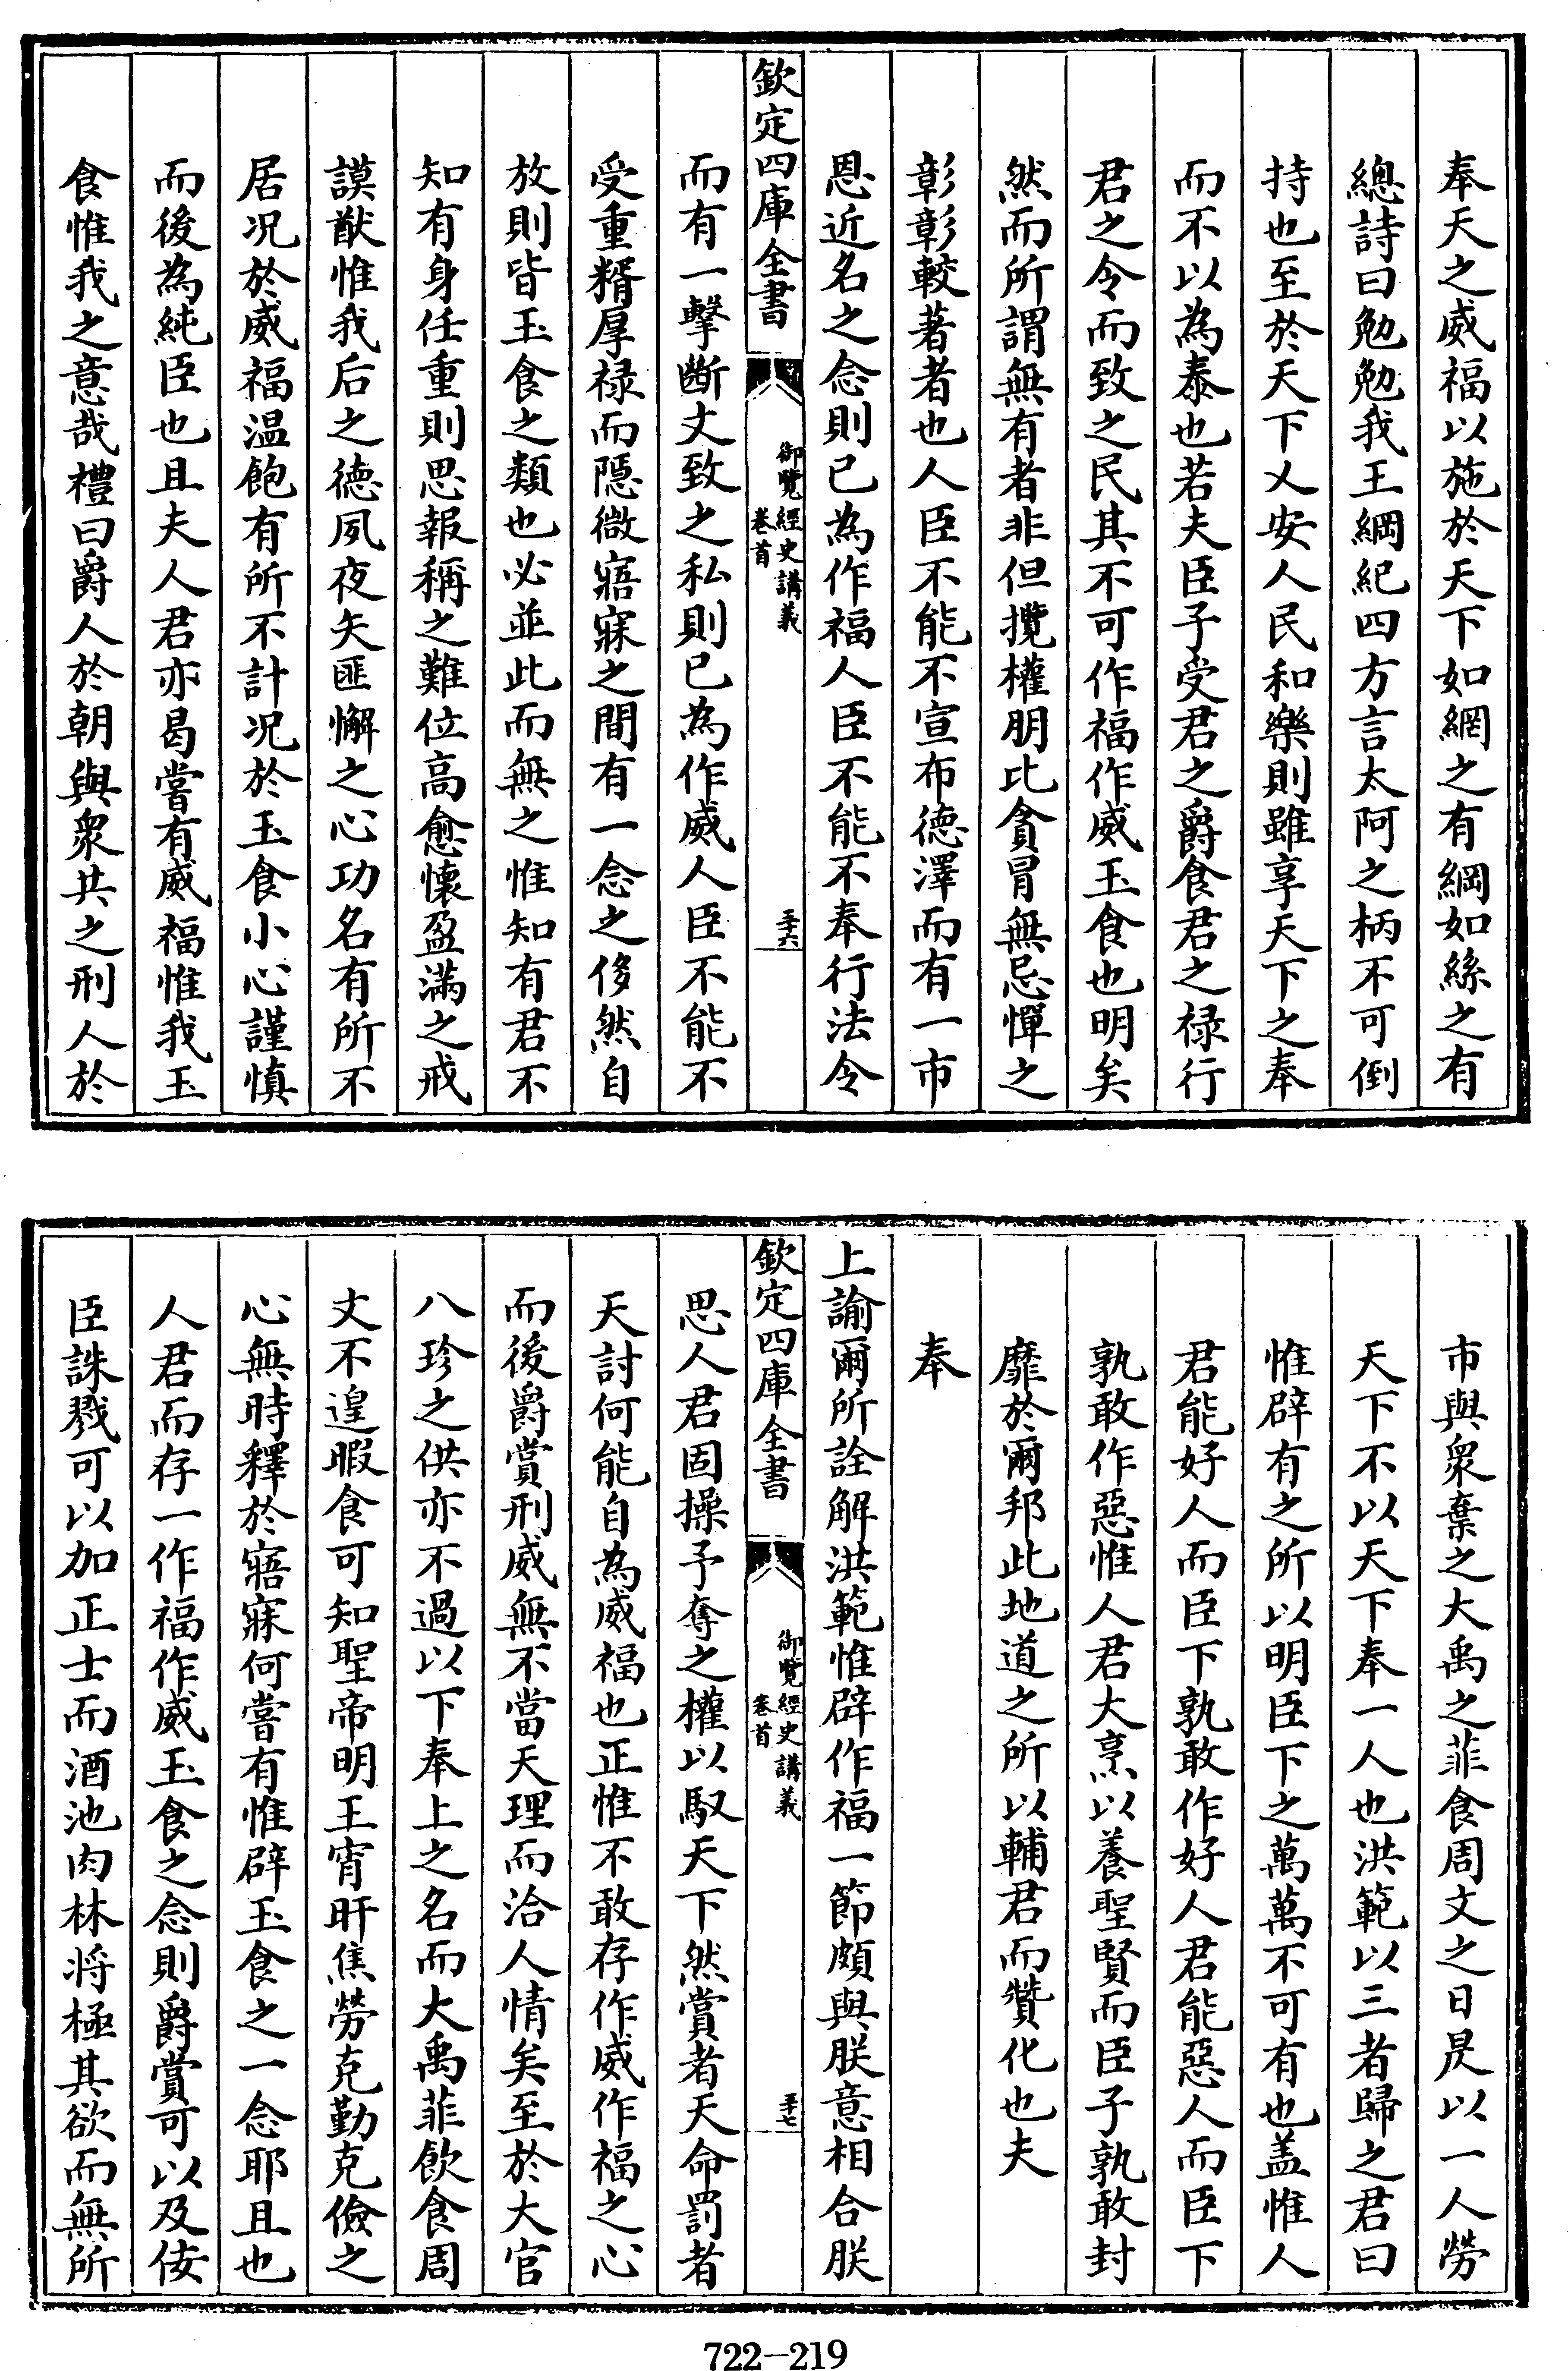 奉天之威福以施於天下如網之有綱如絲之有
總詩曰勉勉我王綱紀四方言太阿之柄不可倒
持也至於天下乂安人民和樂則雖享天下之奉
而不以為泰也若夫臣子受君之爵食君之禄行
君之令而致之民其不可作福作威玉食也明矣
然而所謂無有者非但攬權朋比貪冒無忌憚之
彰彰較著者也人臣不能不宣布德澤而有一市
恩近名之念則已為作福人臣不能不奉行法令
欽定四庫全書
御覽經史講義
卷首
三十六
而有一擊斷文致之私則已為作威人臣不能不
受重糈厚禄而隱微寤寐之間有一念之侈然自
放則皆玉食之類也必並此而無之惟知有君不
知有身任重則思報稱之難位高愈懷盈滿之戒
謨猷惟我后之德夙夜矢匪懈之心功名有所不
居况於威福温飽有所不計况於玉食小心謹慎
而後為純臣也且夫人君亦曷嘗有威福惟我玉
食惟我之意哉禮曰爵人於朝與衆共之刑人於
市與衆棄之大禹之菲食周文之日昃以一人勞
天下不以天下奉一人也洪範以三者歸之君曰
惟辟有之所以明臣下之萬萬不可有也盖惟人
君能好人而臣下孰敢作好人君能惡人而臣下
孰敢作惡惟人君大烹以養聖賢而臣子孰敢封
靡於爾邦此地道之所以輔君而贊化也夫
奉
上諭爾所詮解洪範惟辟作福一節頗與朕意相合朕
欽定四庫全書
御覽經史講義
卷首
三十七
思人君固操予奪之權以馭天下然賞者天命罰者
天討何能自為威福也正惟不敢存作威作福之心
而後爵賞刑威無不當天理而洽人情矣至於大官
八珍之供亦不過以下奉上之名而大禹菲飲食周
文不遑暇食可知聖帝明王宵旰焦勞克勤克儉之
心無時釋於寤寐何嘗有惟辟玉食之一念耶且也
人君而存一作福作威玉食之念則爵賞可以及佞
臣誅戮可以加正士而酒池肉林将極其欲而無所
722-219